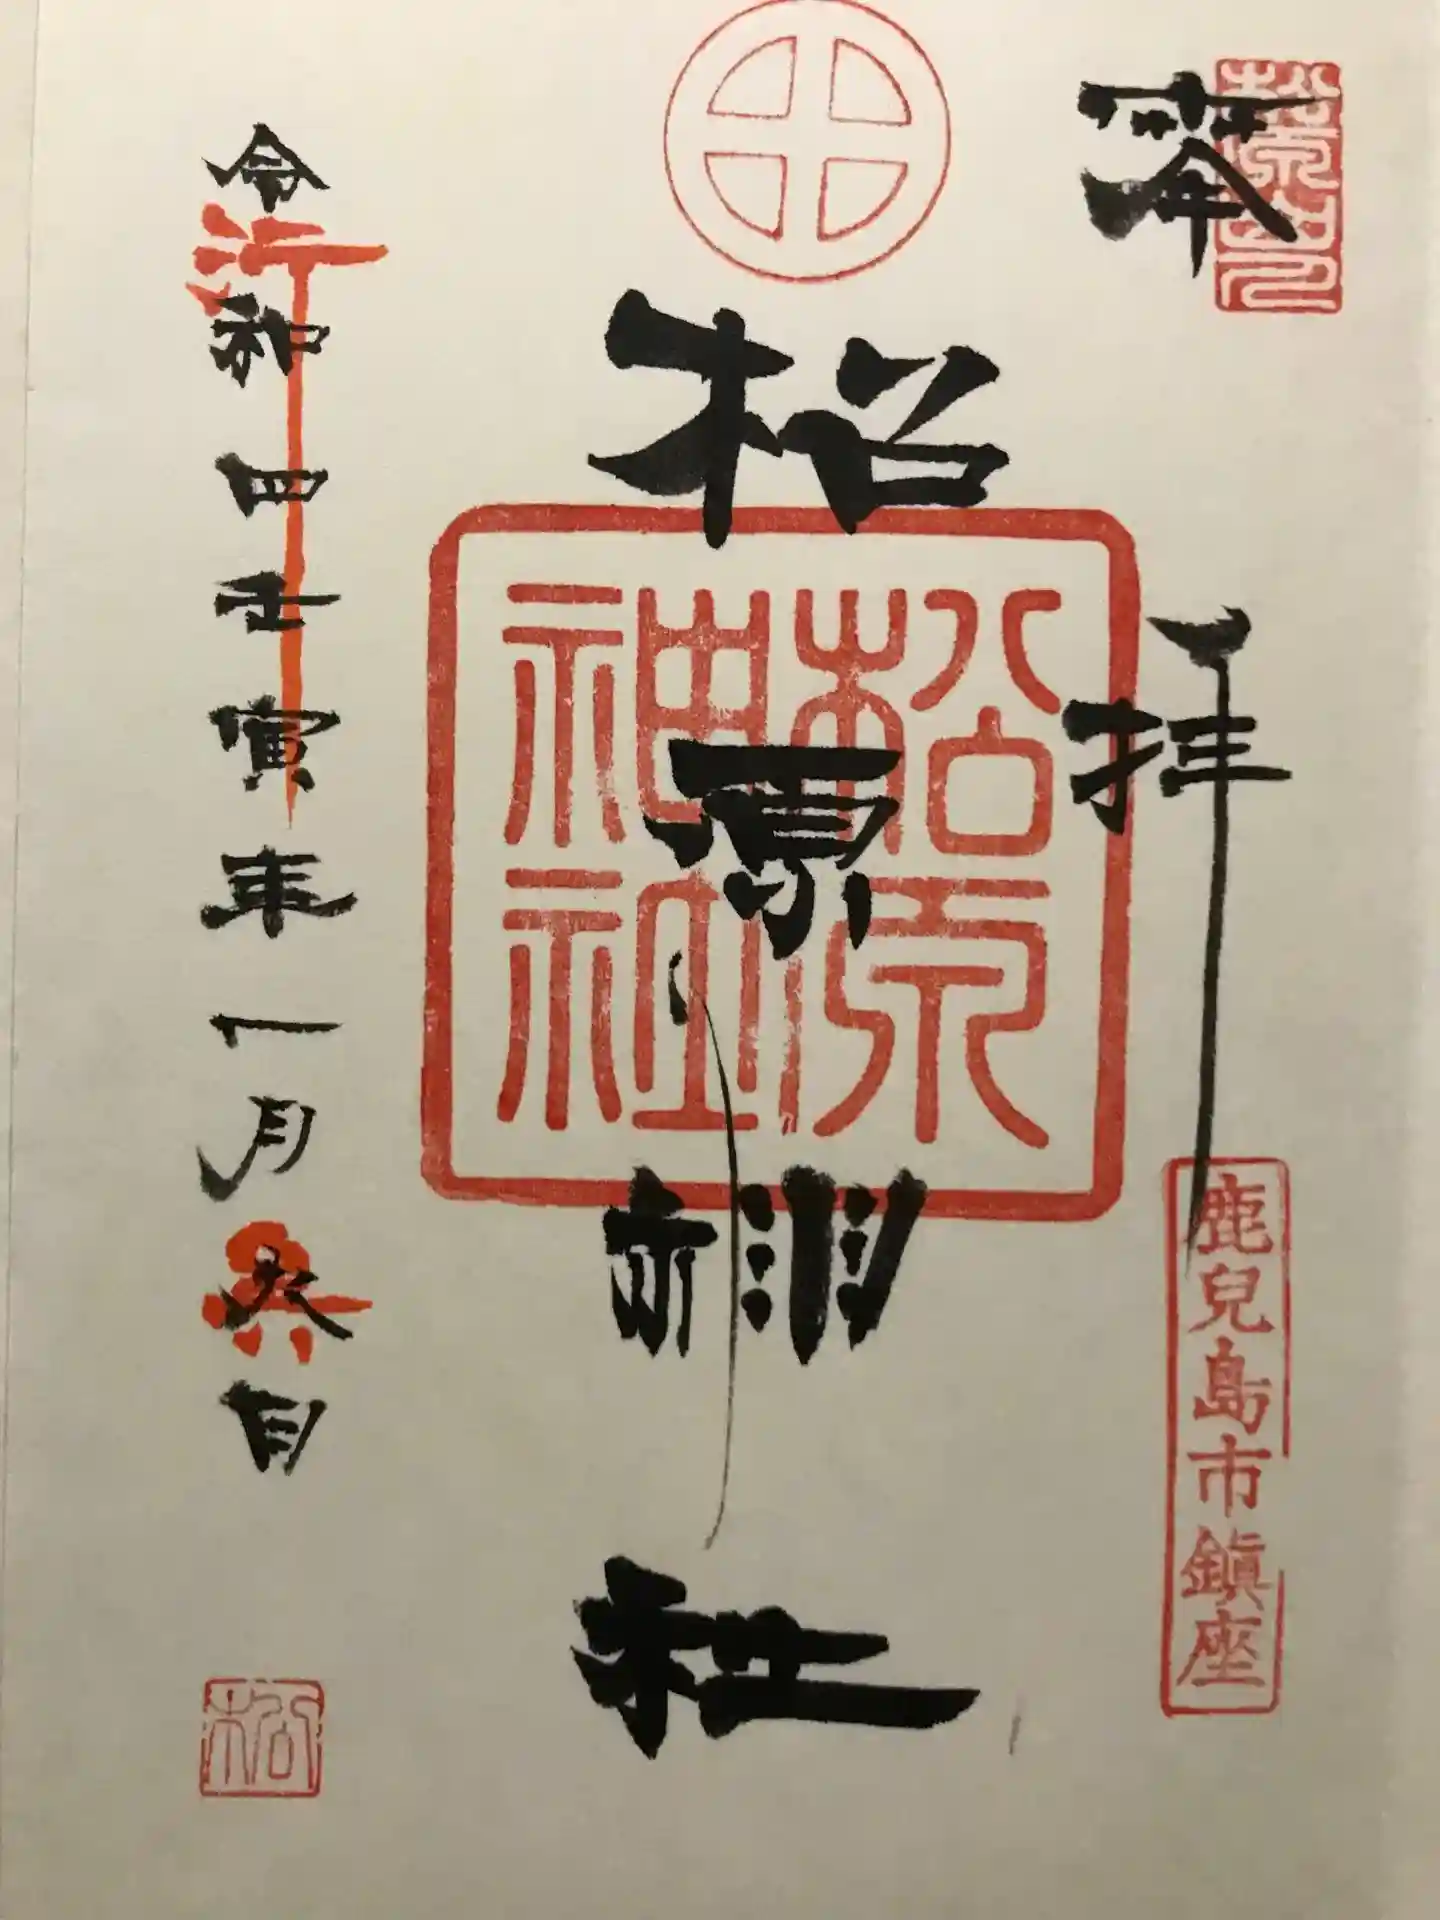 奉拝
鹿兒島市鎮座
松原神社
松原
神社
令和四壬寅年一月日
松